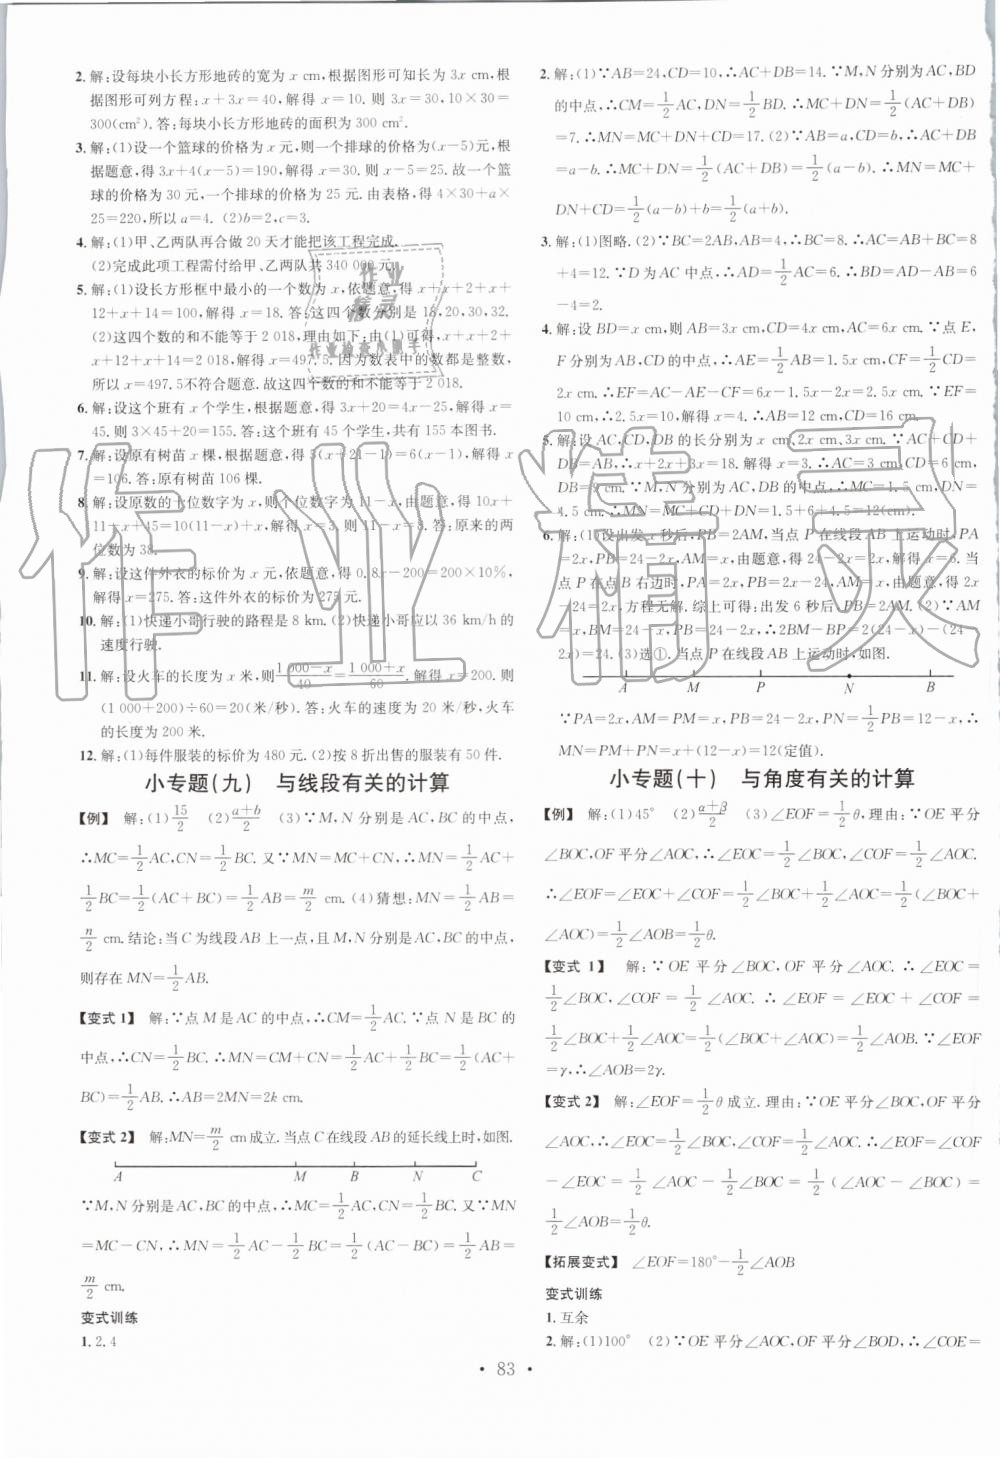 2. 解:设每块小长方形地砖的宽为 x cm,根据图形可知长为 3x cm,根
据图形可列方程:x+3x=40,解得 x=10. 则 3x=30,10×30=
300(cm²). 答:每块小长方形地砖的面积为 300 cm².
3. 解:(1)设一个篮球的价格为 x 元,则一个排球的价格为(x−5)元,根
据题意,得 3x+4(x−5)=190,解得 x=30. 则 x−5=25. 故一个篮
球的价格为 30 元,一个排球的价格为 25 元. 由表格,得 4×30+a×
25=220,所以 a=4. (2)b=2,c=3.
4. 解:(1)甲、乙两队再合做 20 天才能把该工程完成.
(2)完成此项工程需付给甲、乙两队共 340 000 元.
5. 解:(1)设长方形框中最小的一个数为 x,依题意,得 x+x+2+x+
12+x+14=100,解得 x=18. 答:这四个数分别是 18,20,30,32.
(2)这四个数的和不能等于 2 018,理由如下:由(1)可得,x+x+2+
x+12+x+14=2 018,解得 x=497.5. 因为数表中的数都是整数,
所以 x=497.5不符合题意. 故这四个数的和不能等于 2 018.
6. 解:设这个班有 x 个学生,根据题意,得 3x+20=4x−25,解得 x=
45. 则 3×45+20=155. 答:这个班有 45 个学生,共有 155 本图书.
7. 解:设原有树苗 x 棵,根据题意,得 5(x+21−1)=6(x−1),解得 x
=106. 答:原有树苗 106 棵.
8. 解:设原数的十位数字为 x,则个位数字为 11−x,由题意,得 10x+
11−x+45=10(11−x)+x,解得 x=3. 则 11−x=8. 答:原来的两
位数为 38.
9. 解:设这件外衣的标价为 x 元,依题意,得 0.8x−200=200×10%,
解得 x=275. 答:这件外衣的标价为 275 元.
10. 解:(1)快递小哥行驶的路程是 8 km. (2)快递小哥应以 36 km/h 的
速度行驶.
11. 解:设火车的长度为 x 米,则(1 000−x)/40=(1 000+x)/60. 解得 x=200. 则
(1 000+200)÷60=20(米/秒). 答:火车的速度为 20 米/秒,火车
的长度为 200 米.
12. 解:(1)每件服装的标价为 480 元. (2)按 8 折出售的服装有 50 件.
小专题(九) 与线段有关的计算
【例】 解:(1)15/2 (2)(a+b)/2 (3)∵M,N 分别是 AC,BC 的中点,
∴MC=1/2AC,CN=1/2BC. 又∵MN=MC+CN,∴MN=1/2AC+
1/2BC=1/2(AC+BC)=1/2AB=m/2 cm. (4)猜想:MN=1/2AB=
n/2 cm. 结论:当 C 为线段 AB 上一点,且 M,N 分别是 AC,BC 的中点,
则存在 MN=1/2AB.
【变式 1】 解:∵点 M 是 AC 的中点,∴CM=1/2AC. ∵点 N 是 BC 的
中点,∴CN=1/2BC. ∴MN=CM+CN=1/2AC+1/2BC=1/2(AC+
BC)=1/2AB. ∴AB=2MN=2k cm.
【变式 2】 解:MN=m/2 cm成立. 当点 C 在线段 AB 的延长线上时,如图.
A M B N C
∵M,N 分别是 AC,BC 的中点,∴MC=1/2AC,CN=1/2BC. ∵MN
=MC−CN,∴MN=1/2AC−1/2BC=1/2(AC−BC)=1/2AB=
m/2 cm.
变式训练
1. 2.4
2. 解:(1)∵AB=24,CD=10,∴AC+DB=14. ∵M,N 分别为 AC,BD
的中点,∴CM=1/2AC,DN=1/2BD. ∴MC+DN=1/2(AC+DB)
=7. ∴MN=MC+DN+CD=17. (2)∵AB=a,CD=b,∴AC+DB
=a−b. ∴MC+DN=1/2(AC+DB)=1/2(a−b). ∴MN=MC+
DN+CD=1/2(a−b)+b=1/2(a+b).
3. 解:(1)图略. (2)∵BC=2AB,AB=4,∴BC=8. ∴AC=AB+BC=8
+4=12. ∵D 为 AC 中点,∴AD=1/2AC=6. ∴BD=AD−AB=6
−4=2.
4. 解:设 BD=x cm,则 AB=3x cm,CD=4x cm,AC=6x cm. ∵点 E,
F 分别为 AB,CD 的中点,∴AE=1/2AB=1.5x cm,CF=1/2CD=
2x cm. ∴EF=AC−AE−CF=6x−1.5x−2x=2.5x cm. ∵EF=
10 cm,∴2.5x=10,解得 x=4. ∴AB=12 cm,CD=16 cm.
5. 解:设 AC,CD,DB 的长分别为 x cm、2x cm、3x cm. ∵AC+CD+
DB=AB,∴x+2x+3x=18,解得 x=3. ∴AC=3 cm,CD=6 cm,
DB=9 cm. ∵M,N 分别为 AC,DB 的中点,∴MC=1.5 cm,DN=
4.5 cm. ∴MN=MC+CD+DN=1.5+6+4.5=12(cm).
6. 解:(1)设出发 x 秒后,PB=2AM,当点 P 在线段 AB 上运动时,PA
=2x,PB=24−2x,AM=x,由题意,得 24−2x=2x,解得 x=6. 当
点 P 在点 B 右边时,PA=2x,PB=2x−24,AM=x,由题意,得 2x
−24=2x,方程无解. 综上可得:出发 6 秒后,PB=2AM. (2)∵AM
=x,BM=24−x,PB=24−2x,∴2BM−BP=2(24−x)−(24−
2x)=24. (3)选①. 当点 P 在线段 AB 上运动时,如图.
A M P N B
∵PA=2x,AM=PM=x,PB=24−2x,PN=1/2PB=12−x,∴
MN=PM+PN=x+(12−x)=12(定值).
小专题(十) 与角度有关的计算
【例】 解:(1)45° (2)(α+β)/2 (3)∠EOF=1/2θ,理由:∵OE 平分
∠BOC,OF 平分∠AOC,∴∠EOC=1/2∠BOC,∠COF=1/2∠AOC.
∴∠EOF=∠EOC+∠COF=1/2∠BOC+1/2∠AOC=1/2(∠BOC+
∠AOC)=1/2∠AOB=1/2θ.
【变式 1】 解:∵OE 平分∠BOC,OF 平分∠AOC. ∴∠EOC=
1/2∠BOC,∠COF=1/2∠AOC. ∴∠EOF=∠EOC+∠COF=
1/2∠BOC+1/2∠AOC=1/2(∠BOC+∠AOC)=1/2∠AOB. ∵∠EOF
=γ,∴∠AOB=2γ.
【变式 2】 解:∠EOF=1/2θ 成立. 理由:∵OE 平分∠BOC,OF 平分
∠AOC,∴∠EOC=1/2∠BOC,∠COF=1/2∠AOC. ∴∠EOF=∠COF−
∠EOC=1/2∠AOC−1/2∠BOC=1/2(∠AOC−∠BOC)=
1/2∠AOB=1/2θ.
【拓展变式】 ∠EOF=180°−1/2∠AOB
变式训练
1. 互余
2. 解:(1)100° (2)∵OE 平分∠AOC,OF 平分∠BOD,∴∠COE=
• 83 •
作业精灵
作业
精灵
作业检查小助手